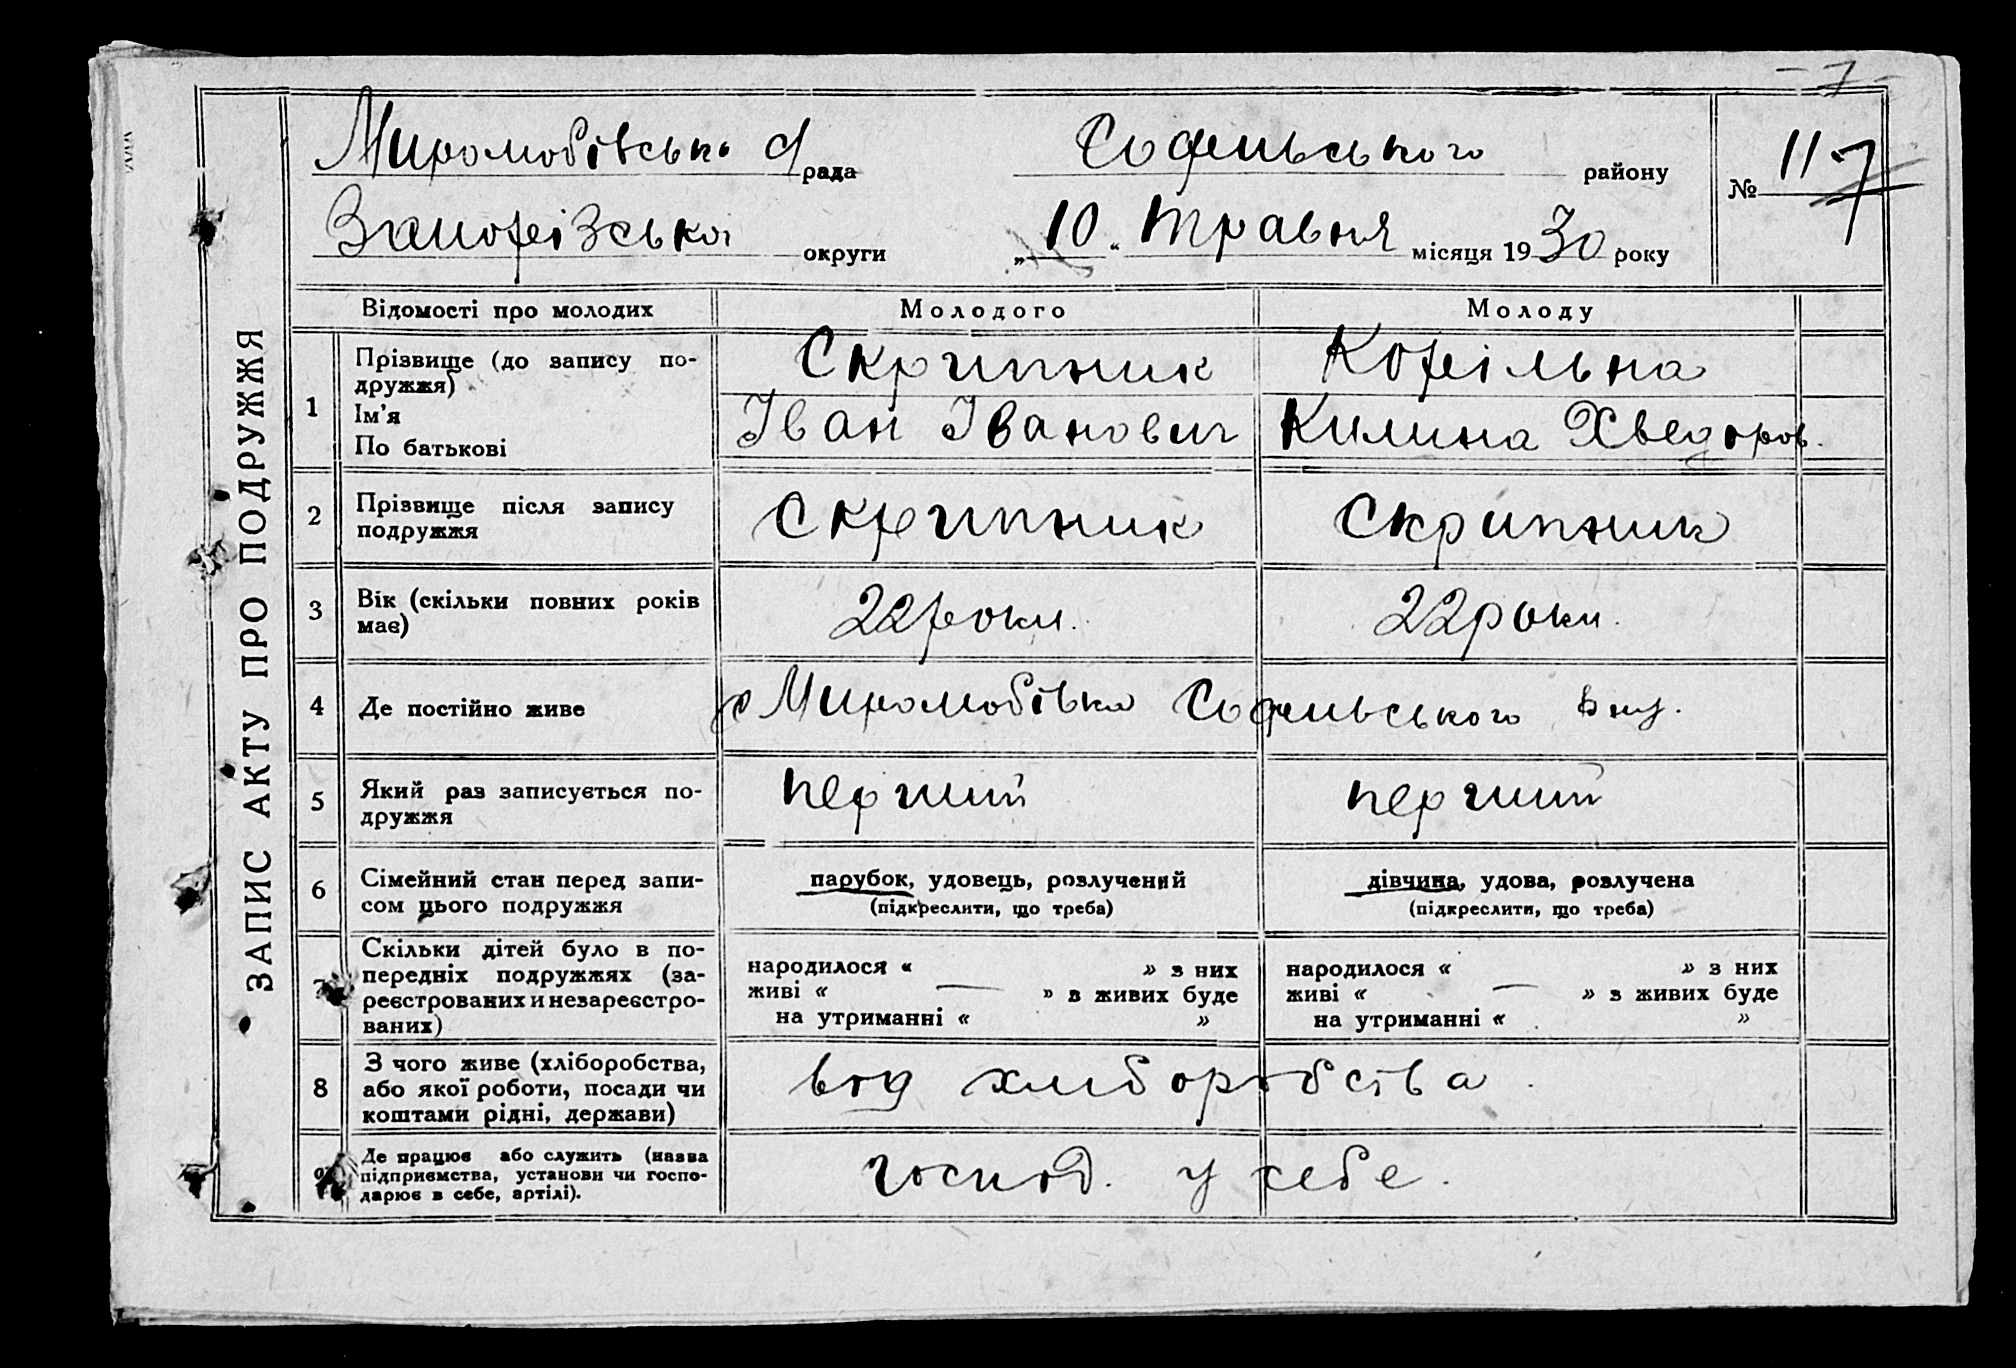 - 7 -
Миромобівська С/рада Софеньського району № 117
Запорізської округи „10“ травня місяця 1930 року
ЗАПИС АКТУ ПРО ПОДРУЖЖЯ
Відомості про молодих Молодого Молоду
1 Прізвище (до запису по-дружжя) Скрипник Корільна
Ім'я
По батькові Іван Іванович Килина Хведоров.
2 Прізвище після запису подружжя Скрипник Скрипник
3 Вік (скільки повних років має) 22 роки. 22 роки.
4 Де постійно живе с Миромобівка Софеньського
5 Який раз записується по-дружжя перший перший
6 Сімейний стан перед запи-сом цього подружжя парубок, удовець, розлучений дівчина, удова, розлучена
(підкреслити, що треба) (підкреслити, що треба)
7 Скільки дітей було в по-передніх подружжях (за-реєстрованих и незареєстро-ваних)
народилося « » з них народилося « » з них
живі « — » в живих буде живі « — » з живих буде
на утриманні « » на утриманні « »
8 З чого живе (хліборобства, або якої роботи, посади чи коштами рідні, держави) від хліборобства.
9 Де працює або служить (назва підприємства, установи чи госпо-дарює в себе, артілі). господ. у себе.